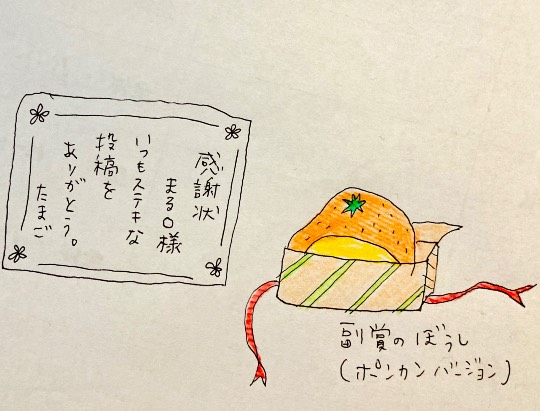 感謝状
まる〇様
いつもステキな
投稿を
ありがとう。
たまご
副賞のぼうし
(ポンカンバージョン)